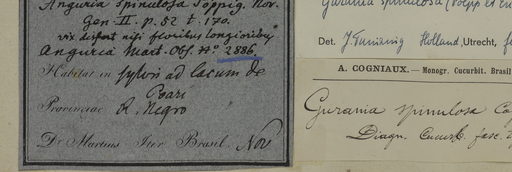 Anguria Spinulosa Pöppig. Nov.
Gen II. p. 52 t. 170.
vix differt nisi floribus longioribus
Anguria Mart. Obs. No 2586
Habitat in sylvis ad lacum de
Provinciae
R. Negro
Dr. Martius Iter Brasil. Nov
Gurania spinulosa (Poepp et
Det. Holland, Utrecht,
A. COGNIAUX. — Monogr. Cucurbit. Brasil
Gurania spinulosa Co
Diagn. Cucurb. fasc.